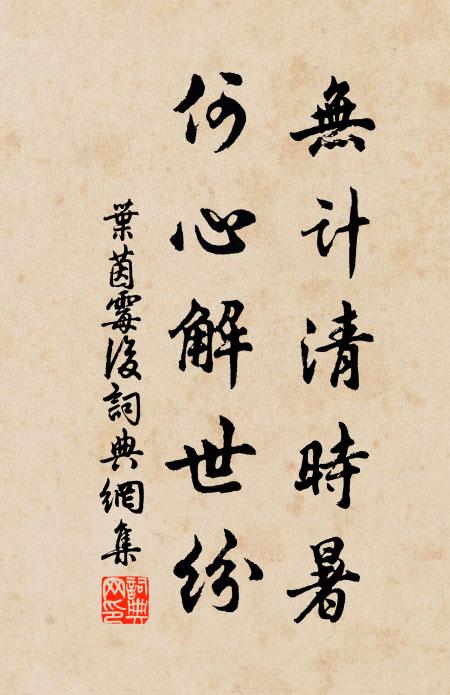 無計清時暑
何心解世紛
葉茵霉後詞典網集
詞典網印